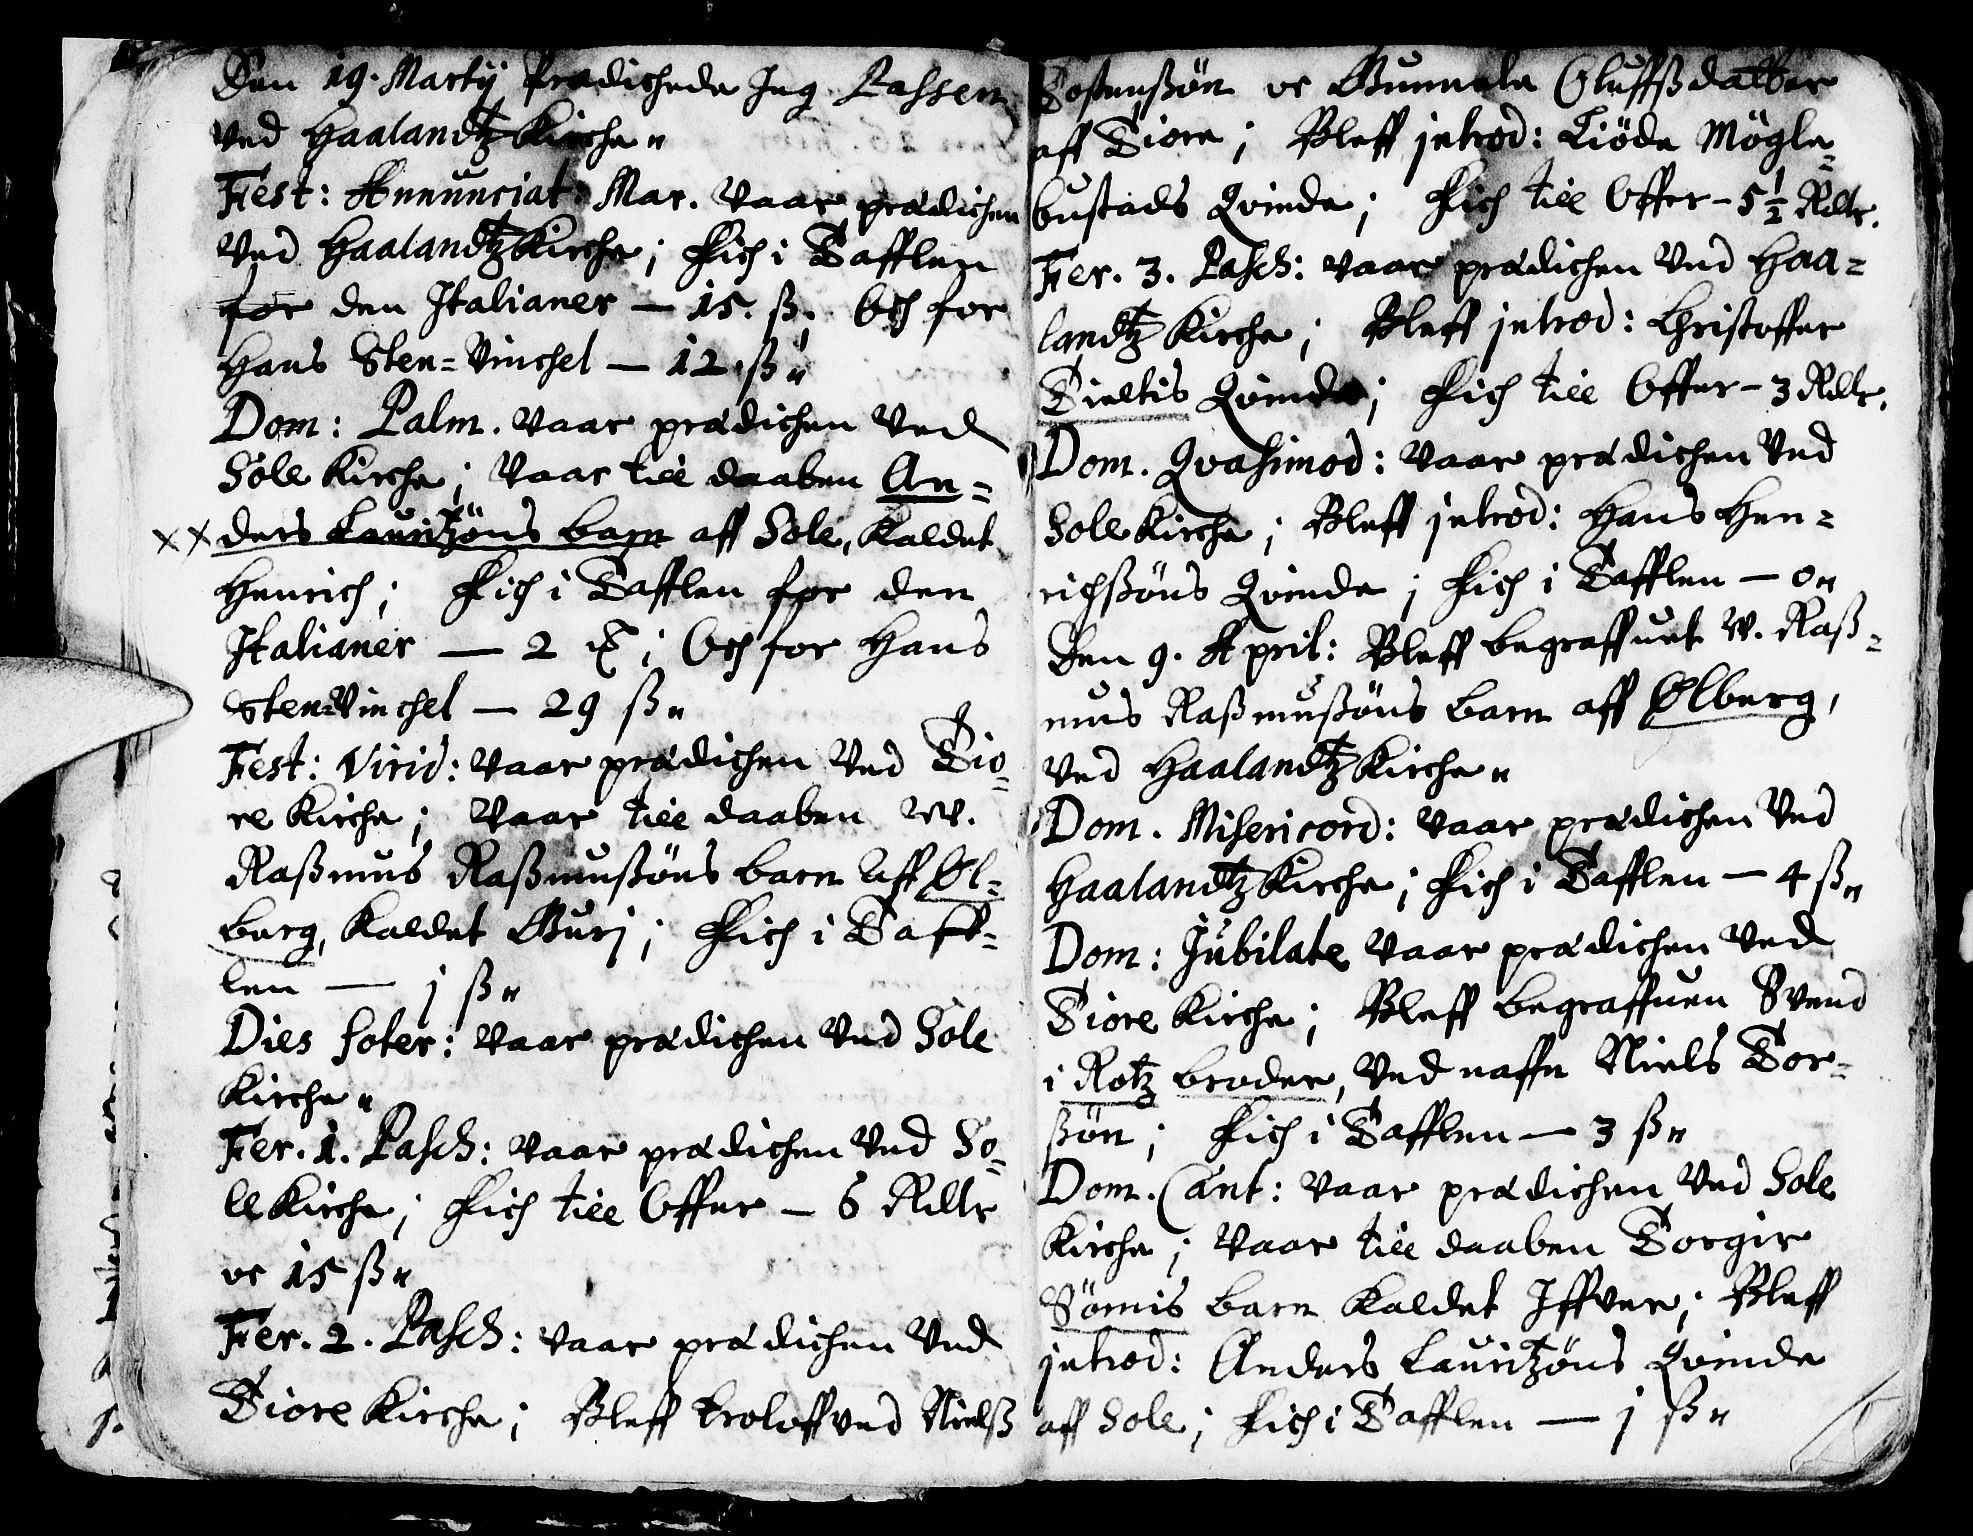 Den 19. Martij prædichede Jeg Passen
ved Haalandtz Kirche„
Fest: Annunciat: Mar. vaar prædichen
ved Haalandtz Kirche; Fich i Tafflen
for den Italianer — 15 ß. Och for
Hans Sten=Vinchel — 12 ß„
Dom: Palm. vaar prædichen ved
Sole Kirche; vaar till daaben An=
xx ders Lauritzöns barn aff Sole, kaldet
Henrich; Fich i Tafflen for den
Italianer — 2 ; Och for Hans
Sten=Vinchel — 29 ß„
Fest: Virid: vaar prædichen ved Tio=
re Kirche; vaar till daaben w.
Raßmus Raßmußöns barn aff Øl=
berg, kaldet Gurj; Fich i Taff=
len — j ß„
Dies soter: vaar prædichen ved Sole
Kirche„
Fer. 1. Pasch: vaar prædichen ved So=
le Kirche; Fich till Offer — 6 Rdlr
oc 15 ß„
Fer. 2. Pasch: vaar prædichen ved
Tiore Kirche; Bleff troloffved Nielß
Tostenßön oc Gunnele Oluffßdatter
aff Tiore; Bleff jntrod: Tiöde Mögle=
bustads Qvinde; Fich till Offer – 5 1/2 Rdlr.
Fer. 3. Pasch: vaar prædichen ved Haa=
landtz Kirche; Bleff jntrod: Christoffer
Tieltis Qvinde; Fich till Offer – 3 Rdlr.
Dom. Qvasimod: vaar prædichen ved
Sole Kirche; Bleff jntrod: Hans Hen=
richßöns Qvinde; Fich i Tafflen — 0„
Den 9. April: Bleff begraffuet w. Raß=
mus Raßmußöns barn aff Ølberg,
ved Haalandtz Kirche„
Dom. Misericord: vaar prædichen ved
Haalandtz Kirche; Fich i Tafflen — 4 ß„
Dom: Jubilate vaar prædichen ved
Tiore Kirche; Bleff begraffuen Svend
i Rotz broder, ved naffn Niels Tor=
ßön; Fich i Tafflen — 3 ß„
Dom. Cant: vaar prædichen ved Sole
Kirche; vaar till daaben Torgir
Sömis barn kaldet Iffver; Bleff
jntrod: Anders Lauritzöns Qvinde
aff Sole; Fich i Tafflen — j ß„